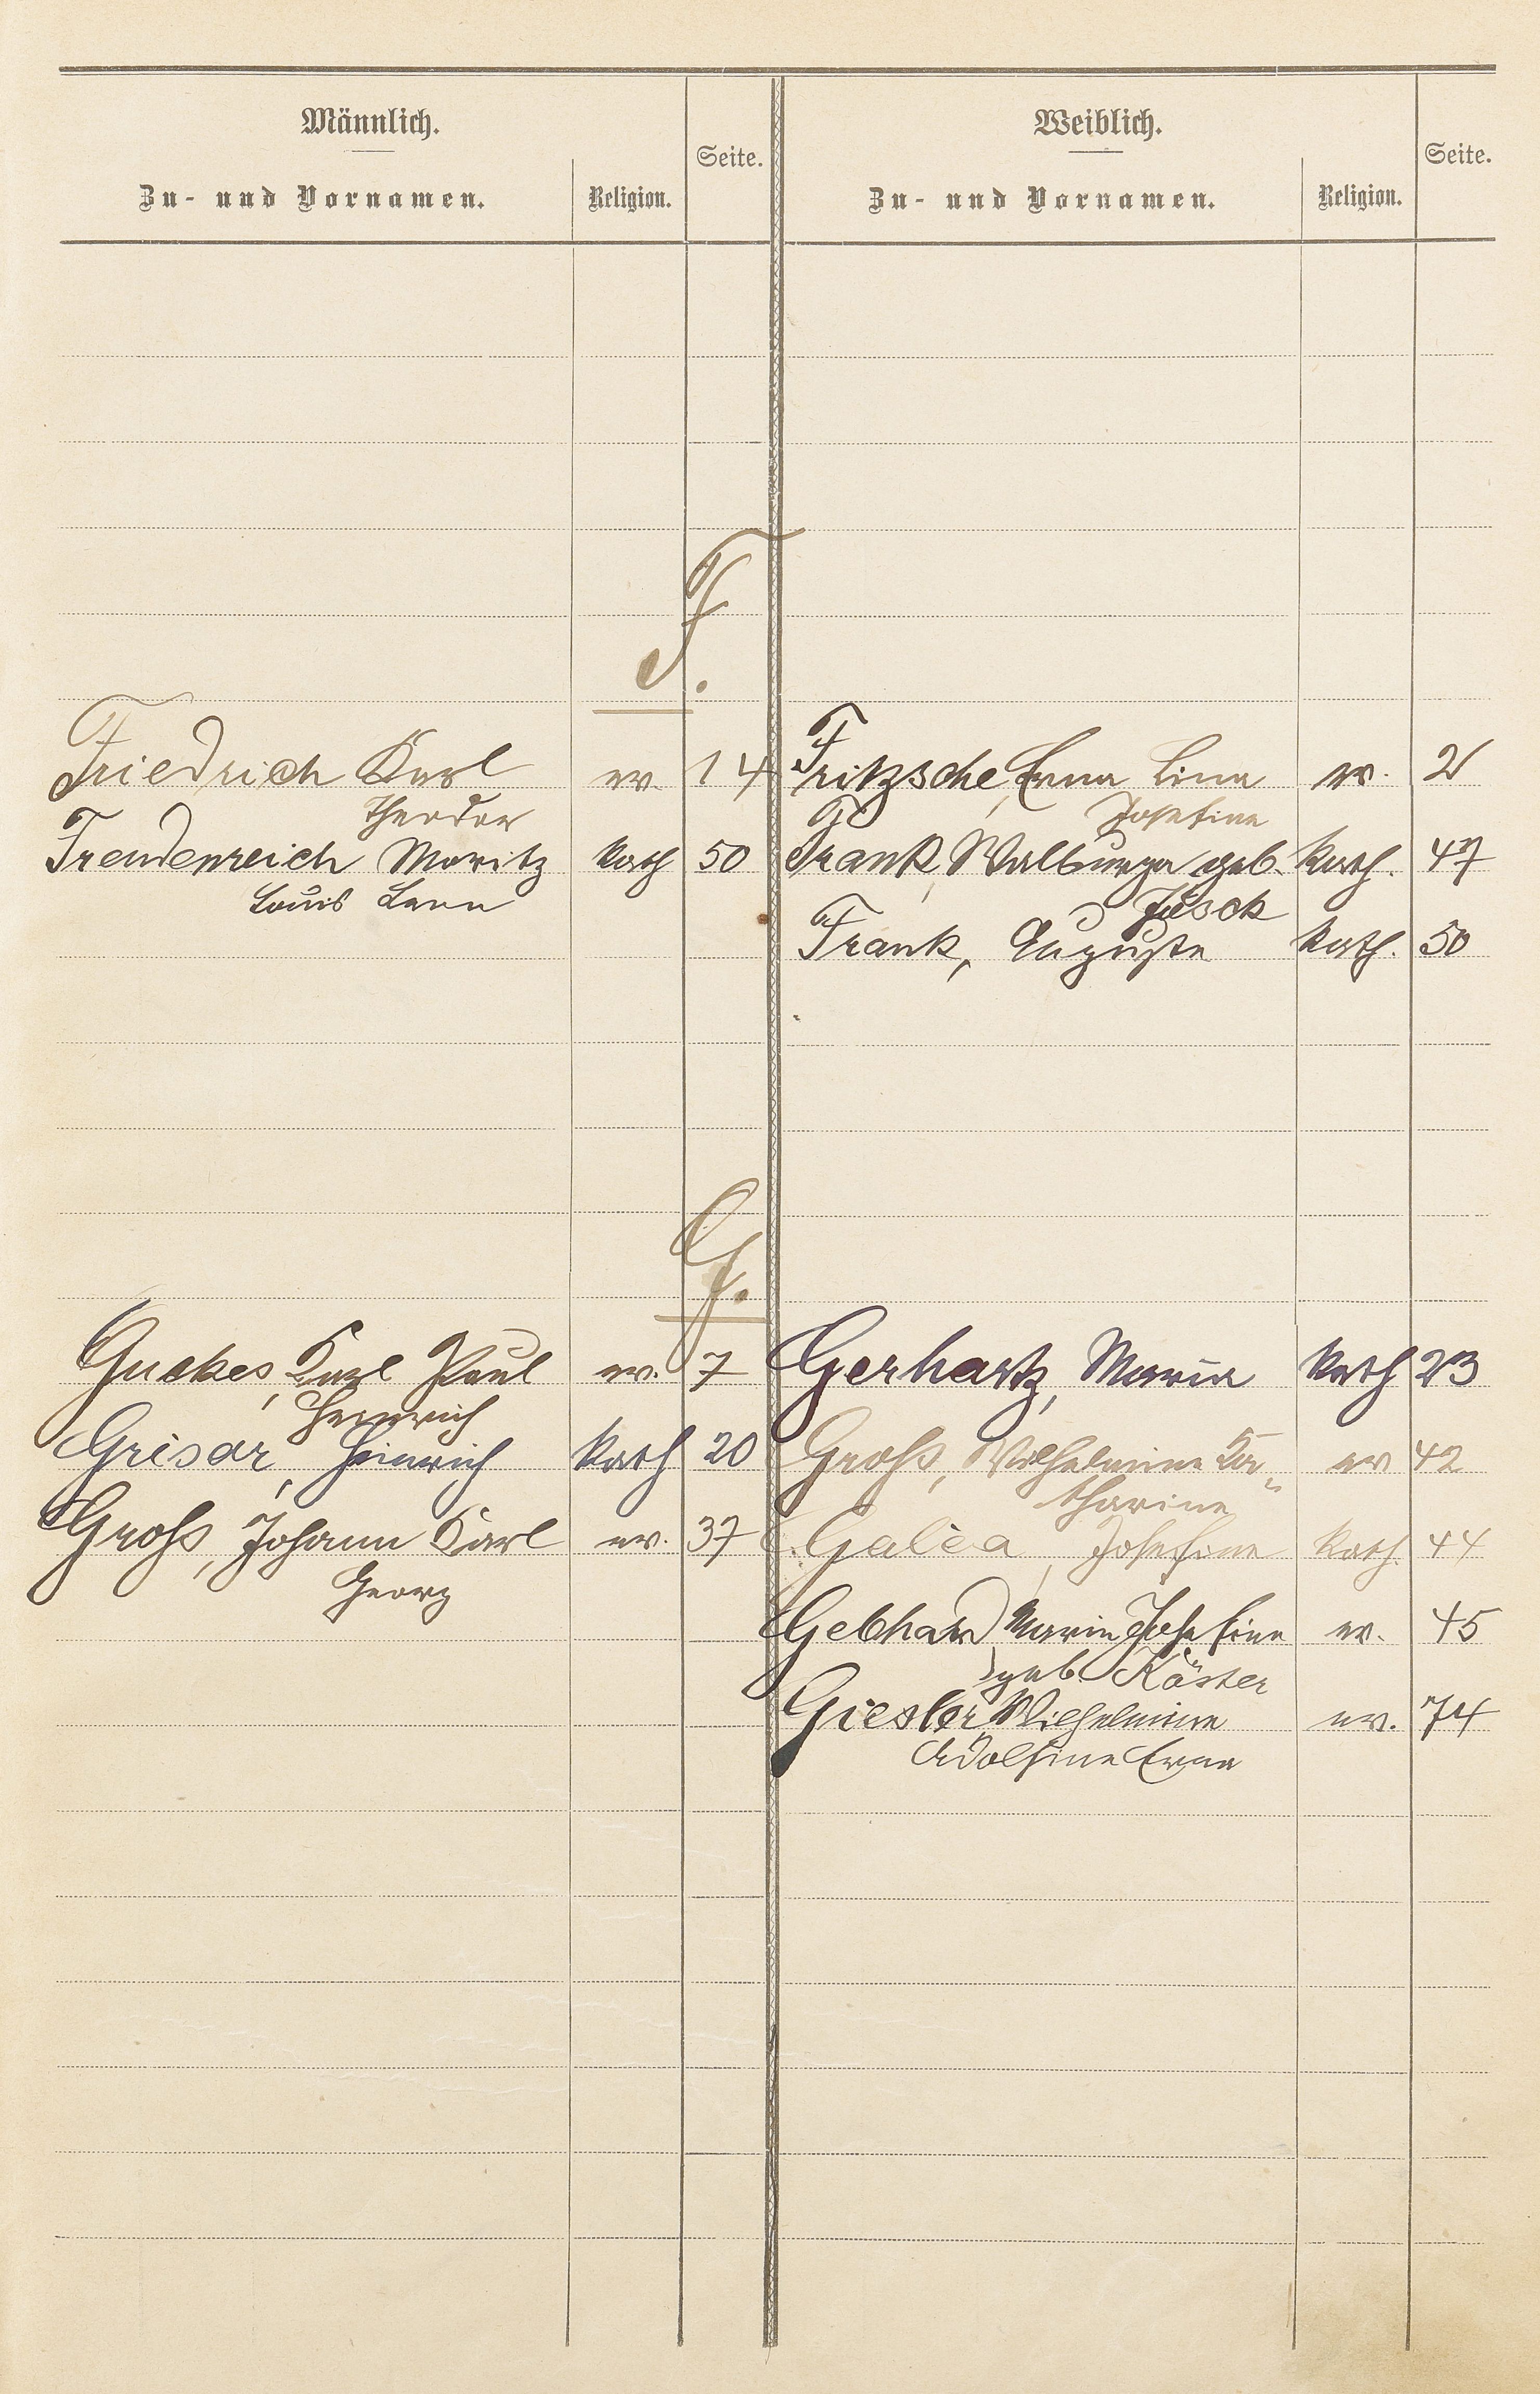 Männlich.
Zu- und Vornamen.
Religion.
Seite.
Weiblich.
Zu- und Vornamen.
Religion.
Seite.
F.
Friedrich Karl ev. 14
Theodor
Freudenreich Moritz kath 50
Louis
Fritzsche, Erna Lina ev. 2
Josefine
Frank, Walburga geb. kath. 47
Jusck
Frank, Auguste kath. 50
G.
Guckes, Karl Paul ev. 7
Heinrich
Grisar, Heinrich kath 20
Groß, Johann Karl ev. 37
Georg
Gerhartz, Maria kath 23
Groß, Wilhelmine Ka„ ev 42
tharine
Galéa, Josefine kath. 44
Gebhard, Maria Josefine ev. 45
geb. Köster
Giesler Wilhelmine ev. 74
Adolfine Erna